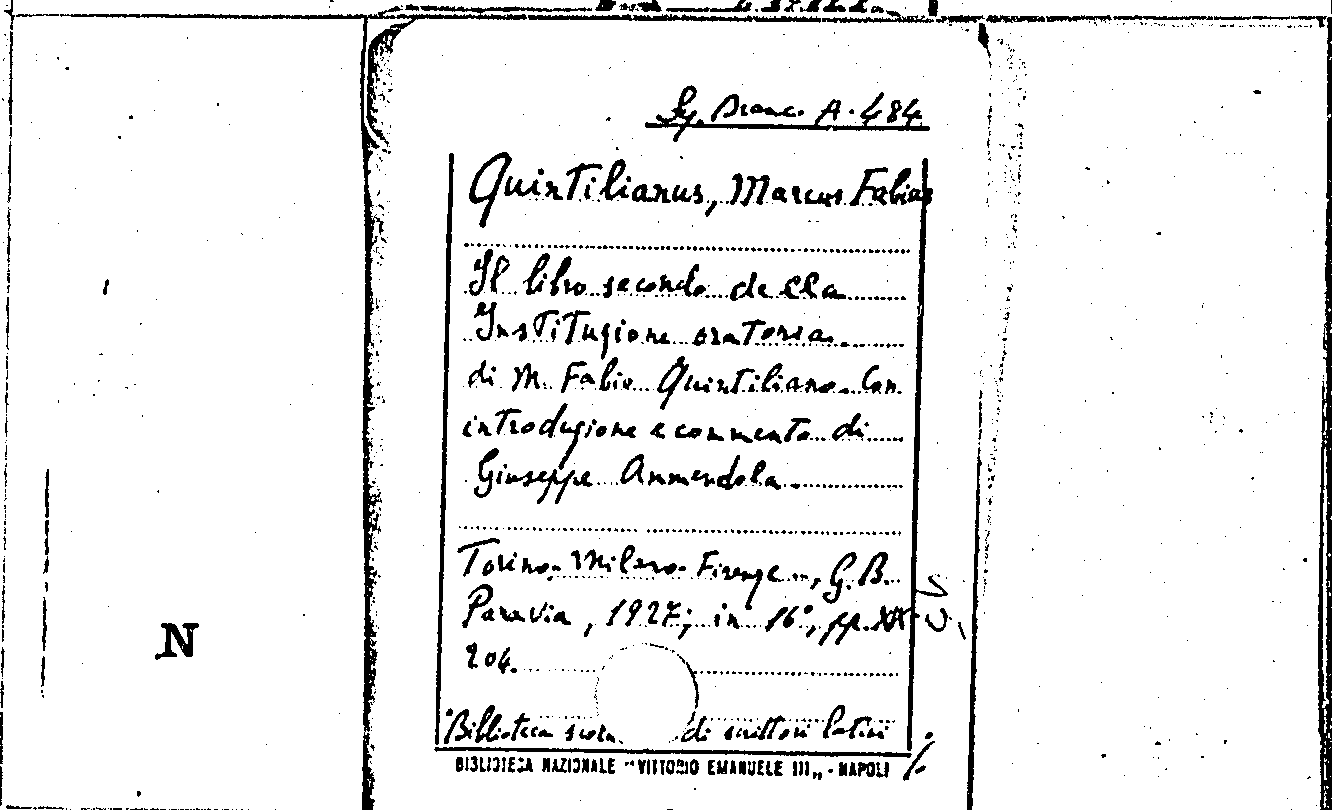 A. 484
Quintilianus, Marcus Fabius
Il libro secondo della
Instituzione oratoria
di M. Fabio Quintiliano. Con
introduzione e commento di
Giuseppe Ammendola.
Torino - Milano - Firenze, G. B.
Paravia, 1927; in 16°, pp. XX-
204.
Biblioteca di scrittori latini
BIBLIOTECA NAZIONALE "VITTORIO EMANUELE III„ - NAPOLI
N